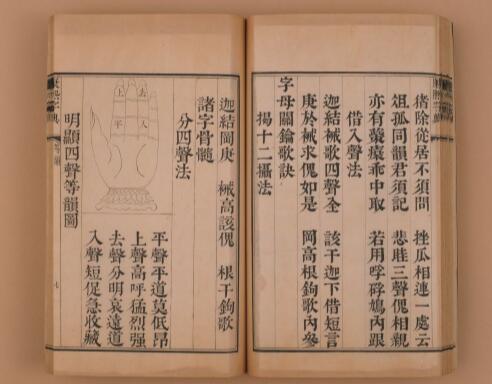 猪除從居不須問 挫瓜相連一處云
俎孤同韻君須記 悲眭三聲傀相親
亦有 乖中取 若用 碎鳩內跟
借入聲法
迦結祴歌四聲全 該干迦下借短言
庚於祴求傀如是 岡高根鉤歌內參
字母關鑰歌訣
揭十二攝法
迦結岡庚 祴高該傀 根干鉤歌
諸字骨髓
分四聲法
去
上
入
平
平聲平道莫低昂
上聲高呼猛烈强
去聲分明哀遠道
入聲短促急收藏
明顯四聲等韻圖
七